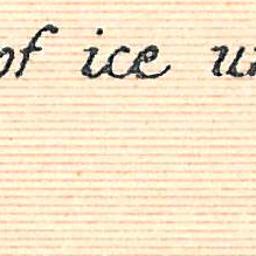 of ice